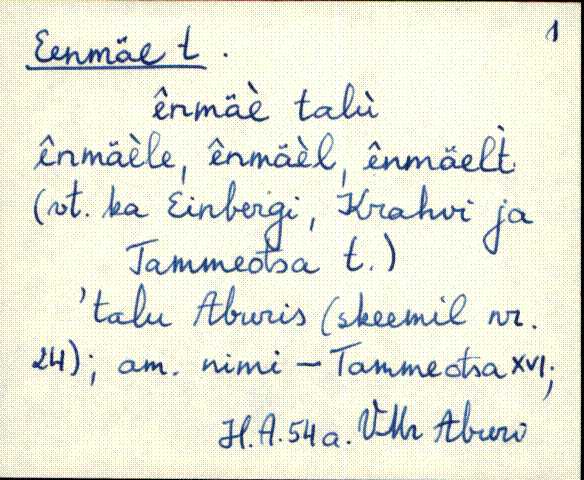 1
Eenmäe t.
ênmäè talù
ênmäèle, ênmäèl, ênmäelt̀
(vt. ka Einbergi, Krahvi ja
Tammeotsa t.)
'talu Aburis (skeemil nr.
24); am. nimi – Tammeotsa XVI;
H.A. 54a. VMr Aburi